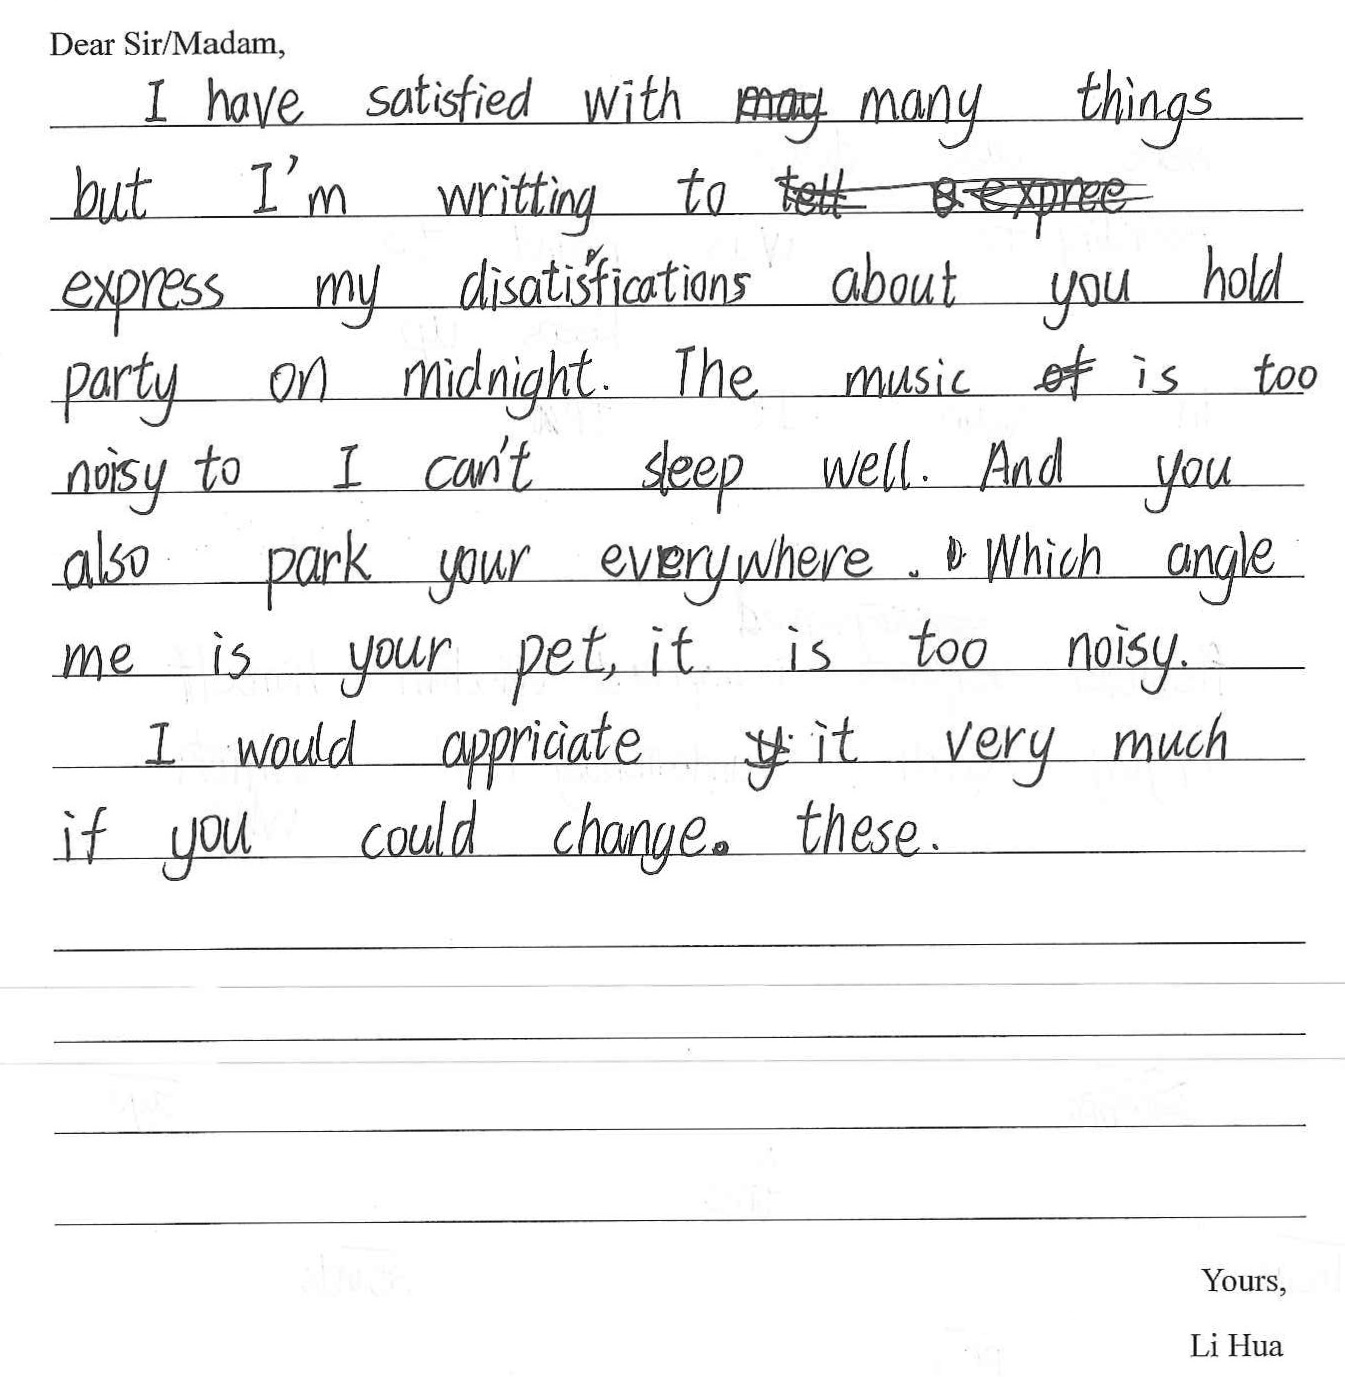 Dear Sir/Madam,
I have satisfied with many things
but I'm writting to
express my disatisfications about you hold
party on midnight. The music is too
noisy to I can't sleep well. And you
also park your everywhere. Which angle
me is your pet, it is too noisy.
I would appriciate it very much
if you could change. these.
Yours,
Li Hua